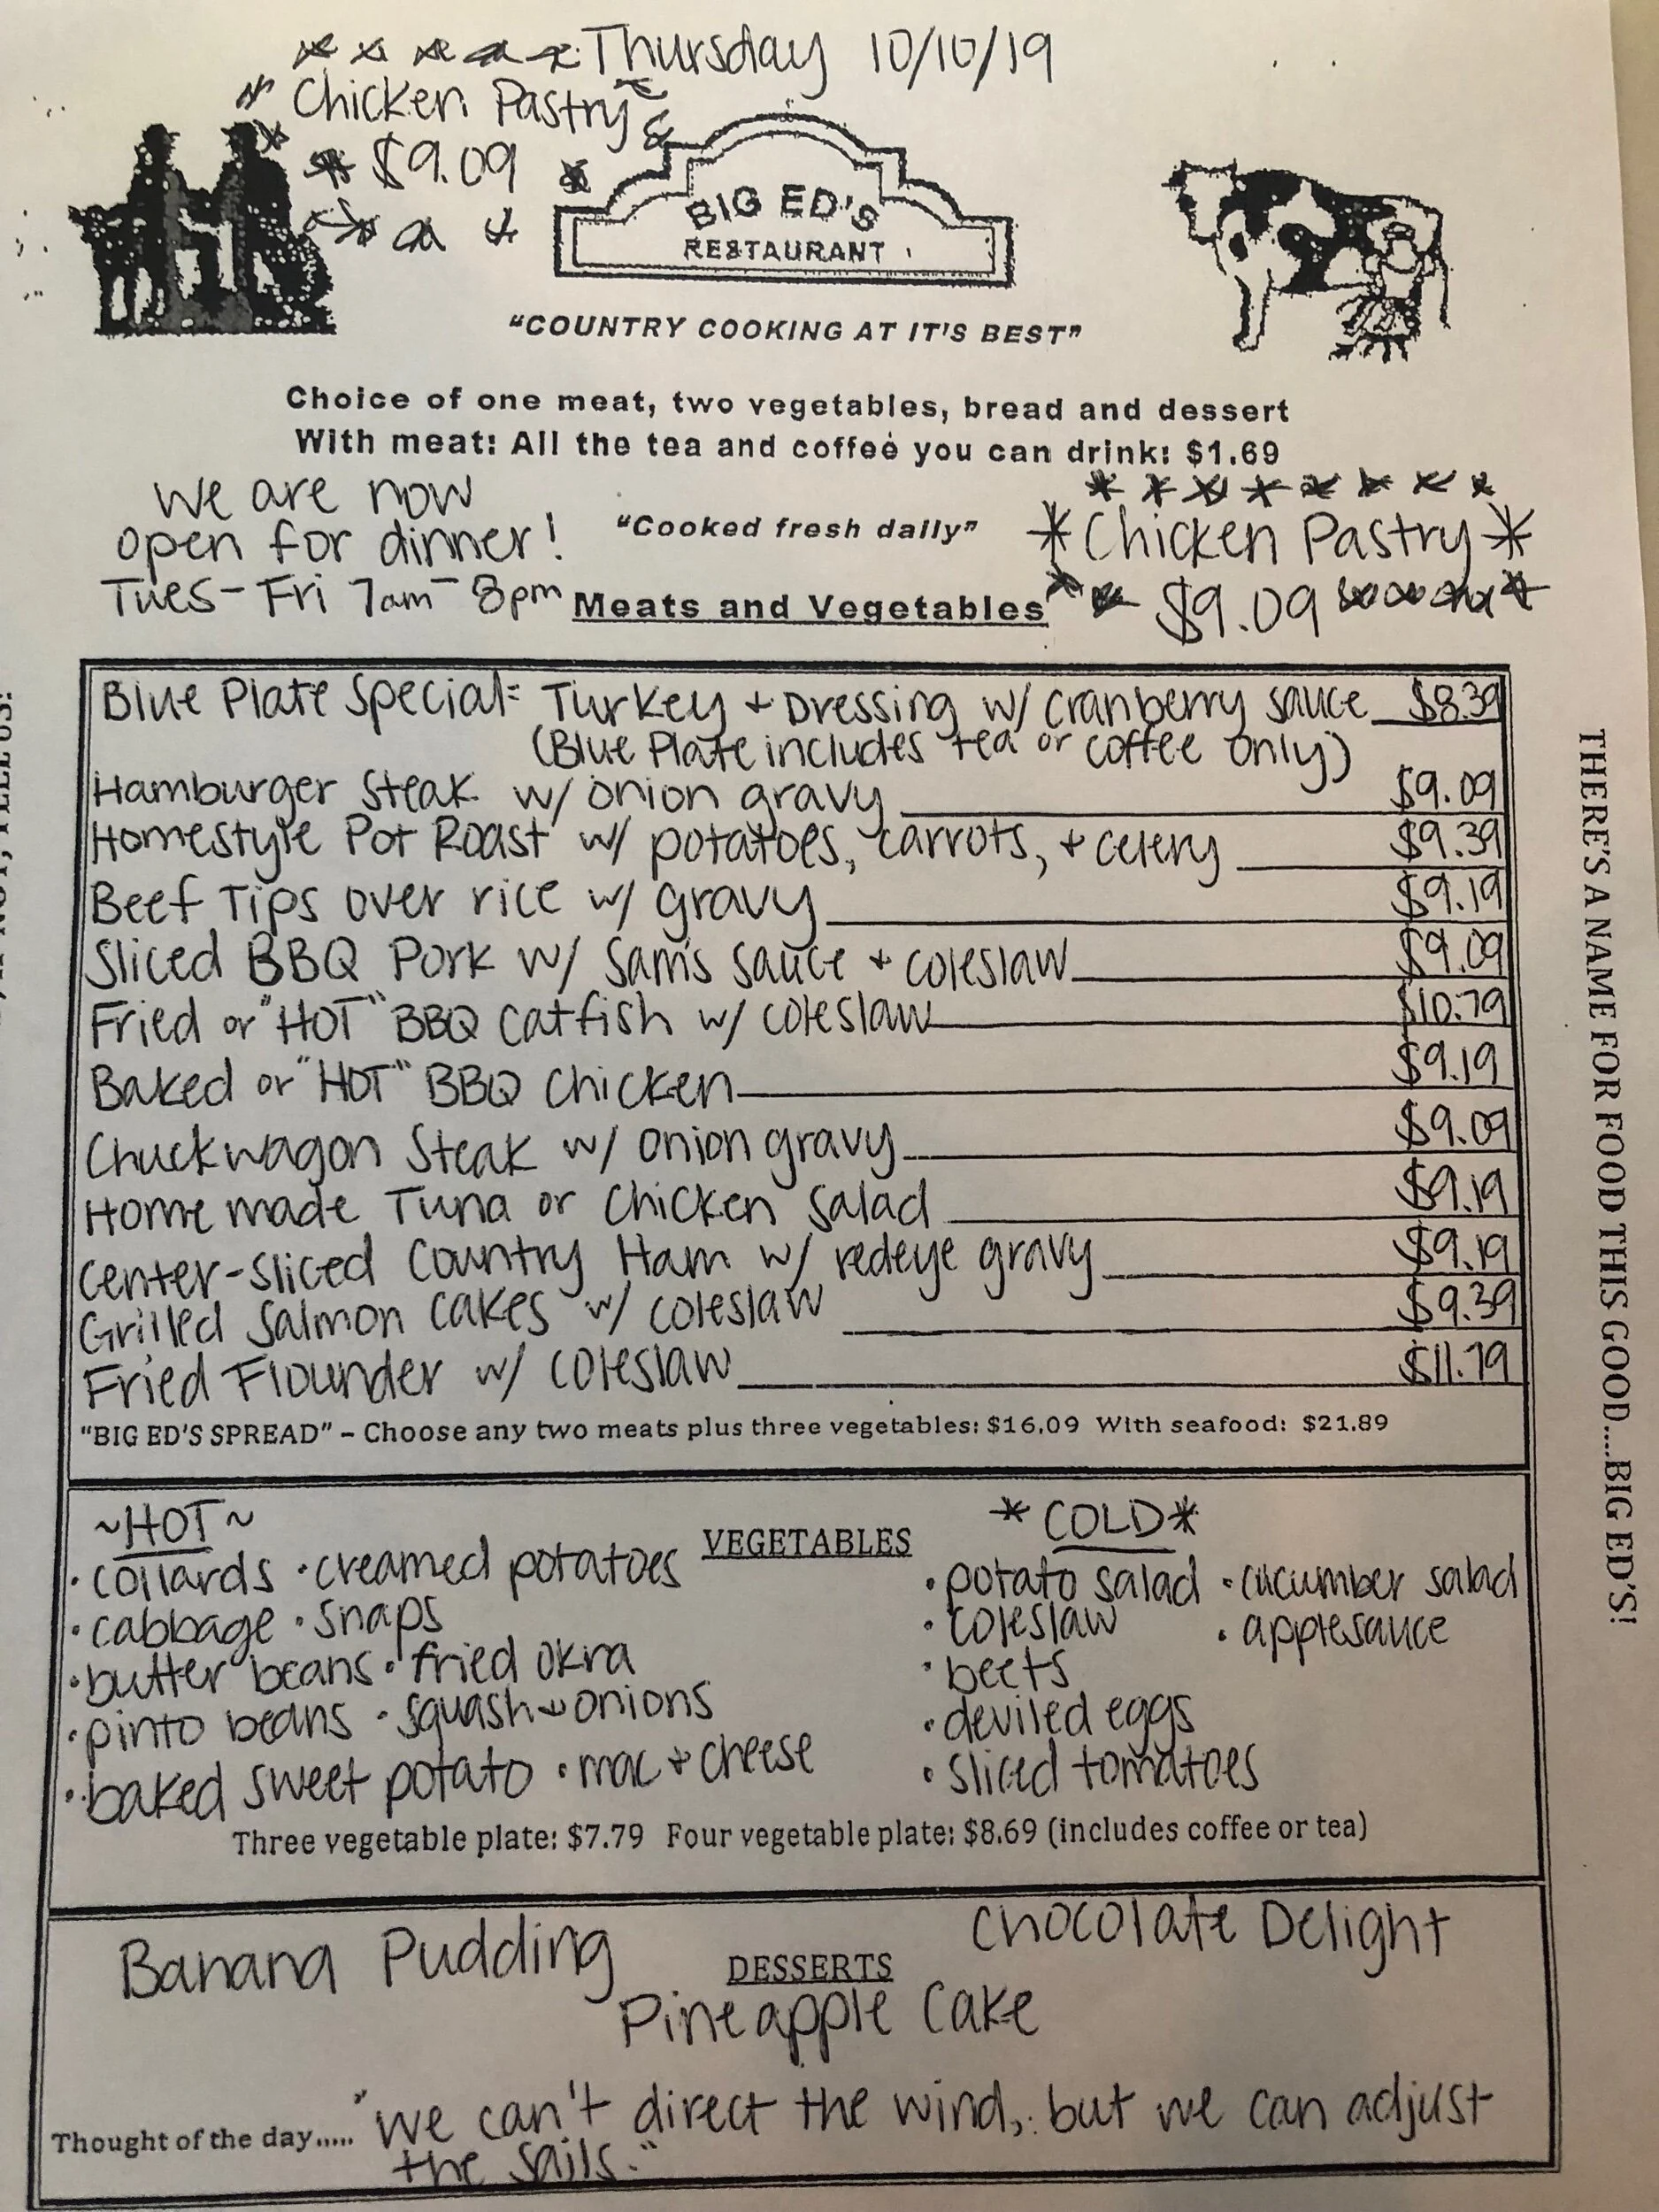 Thursday 10/10/19
Chicken Pastry
$9.09
BIG ED'S
RESTAURANT
"COUNTRY COOKING AT IT'S BEST"
Choice of one meat, two vegetables, bread and dessert
With meat: All the tea and coffee you can drink: $1.69
We are now
open for dinner!
Tues-Fri 7am-8pm
"Cooked fresh daily"
*Chicken Pastry*
$9.09
Meats and Vegetables
Blue Plate Special= Turkey + Dressing w/ cranberry sauce $8.39
(Blue Plate includes tea or coffee only)
Hamburger Steak w/ onion gravy $9.09
Homestyle Pot Roast w/ potatoes, carrots, + celery $9.39
Beef Tips over rice w/ gravy $9.19
Sliced BBQ Pork w/ Sam's sauce + coleslaw $9.09
Fried or "HOT" BBQ catfish w/ coleslaw $10.79
Baked or "HOT" BBQ chicken $9.19
Chuckwagon Steak w/ onion gravy $9.09
Homemade Tuna or Chicken Salad $9.19
Center-Sliced Country Ham w/ redeye gravy $9.19
Grilled Salmon cakes w/ coleslaw $9.39
Fried Flounder w/ coleslaw $11.79
"BIG ED'S SPREAD" – Choose any two meats plus three vegetables: $16.09 With seafood: $21.89
VEGETABLES
~HOT~
• collards • creamed potatoes
• cabbage • snaps
• butter beans • fried okra
• pinto beans • squash + onions
• baked sweet potato • mac + cheese
*COLD*
• potato salad • cucumber salad
• coleslaw • applesauce
• beets
• deviled eggs
• sliced tomatoes
Three vegetable plate: $7.79 Four vegetable plate: $8.69 (includes coffee or tea)
DESSERTS
Banana Pudding
Chocolate Delight
Pineapple Cake
Thought of the day..... "We can't direct the wind, but we can adjust
the sails."
THERE'S A NAME FOR FOOD THIS GOOD....BIG ED'S!
TELL US!